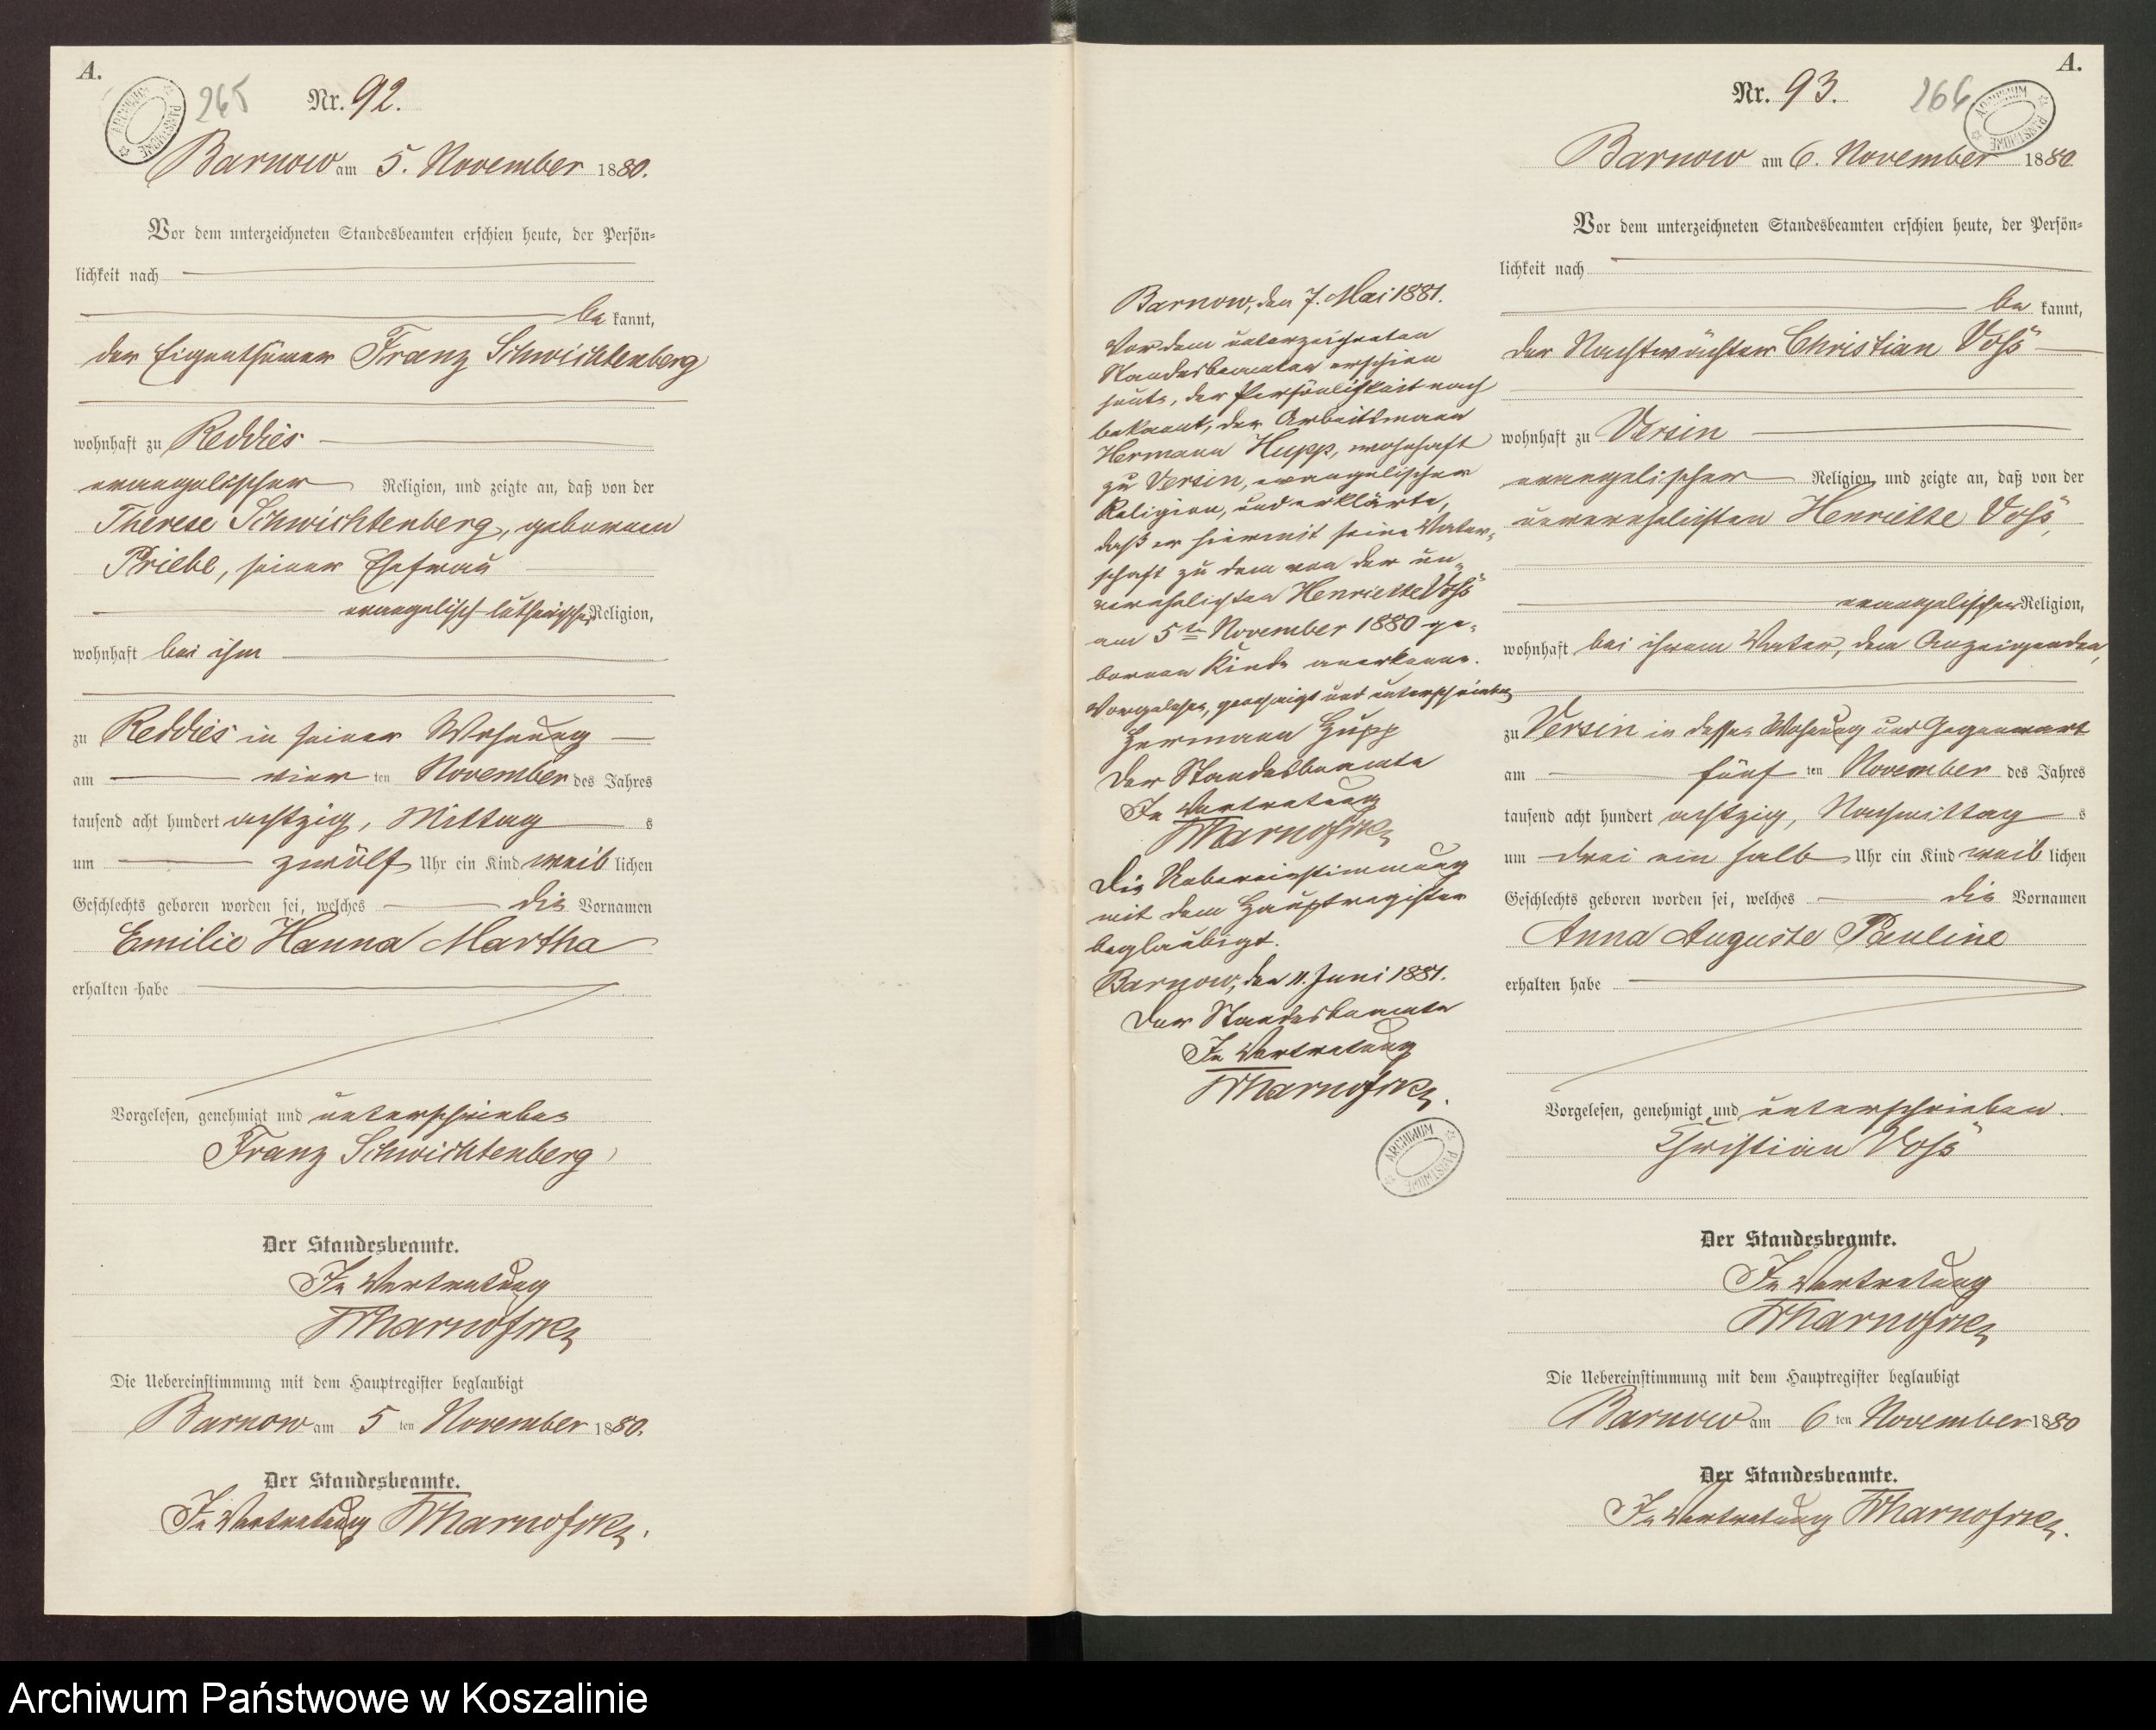 A.
ARCHIWUM PAŃSTWOWE
265
Nr. 92.
Barnow am 5. November 1880.
Vor dem unterzeichneten Standesbeamten erschien heute, der Persön=
lichkeit nach
be kannt,
der Eigenthümer Franz Schwichtenberg
wohnhaft zu Reddies
evangelischer Religion, und zeigte an, daß von der
Therese Schwichtenberg, geborenen
Priebe, seiner Ehefrau
evangelisch-lutherischer Religion,
wohnhaft bei ihm
zu Reddies in seiner Wohnung
am vier ten November des Jahres
tausend acht hundert achtzig, Mittag s
um zwölf Uhr ein Kind weib lichen
Geschlechts geboren worden sei, welches die Vornamen
Emilie Hanna Martha
erhalten habe
Vorgelesen, genehmigt und unterschrieben
Franz Schwichtenberg
Der Standesbeamte.
In Vertretung
Die Uebereinstimmung mit dem Hauptregister beglaubigt
Barnow am 5 ten November 1880.
Der Standesbeamte.
In Vertretung
Barnow, den 7. Mai 1881.
Vor dem unterzeichneten
Standesbeamten erschien
heute, der Persönlichkeit nach
bekannt, der Arbeitsmann
Hermann Hupp, wohnhaft
zu Versin, evangelischer
Religion, und erklärte,
daß er hiermit seine Vater=
schaft zu dem von der un=
verehelichten Henriette Voß
am 5ten November 1880 ge=
bornen Kinde anerkenne.
Vorgelesen, genehmigt und unterschrieben
Hermann Hupp
Der Standesbeamte
In Vertretung
Die Uebereinstimmung
mit dem Hauptregister
beglaubigt.
Barnow, den 11. Juni 1881.
Der Standesbeamte
In Vertretung
ARCHIWUM PAŃSTWOWE
A.
Nr. 93.
266
ARCHIWUM PAŃSTWOWE
Barnow am 6. November 1880
Vor dem unterzeichneten Standesbeamten erschien heute, der Persön=
lichkeit nach
be kannt,
der Nachtwächter Christian Voß
wohnhaft zu Versin
evangelischer Religion, und zeigte an, daß von der
unverehelichten Henriette Voß,
evangelischer Religion,
wohnhaft bei ihrem Vater, dem Anzeigenden,
zu Versin in dessen Wohnung und Gegenwart
am fünf ten November des Jahres
tausend acht hundert achtzig, Nachmittag s
um drei ein halb Uhr ein Kind weib lichen
Geschlechts geboren worden sei, welches die Vornamen
Anna Auguste Pauline
erhalten habe
Vorgelesen, genehmigt und unterschrieben.
Christian Voß
Der Standesbeamte.
In Vertretung
Die Uebereinstimmung mit dem Hauptregister beglaubigt
Barnow am 6 ten November 1880
Der Standesbeamte.
In Vertretung
Archiwum Państwowe w Koszalinie